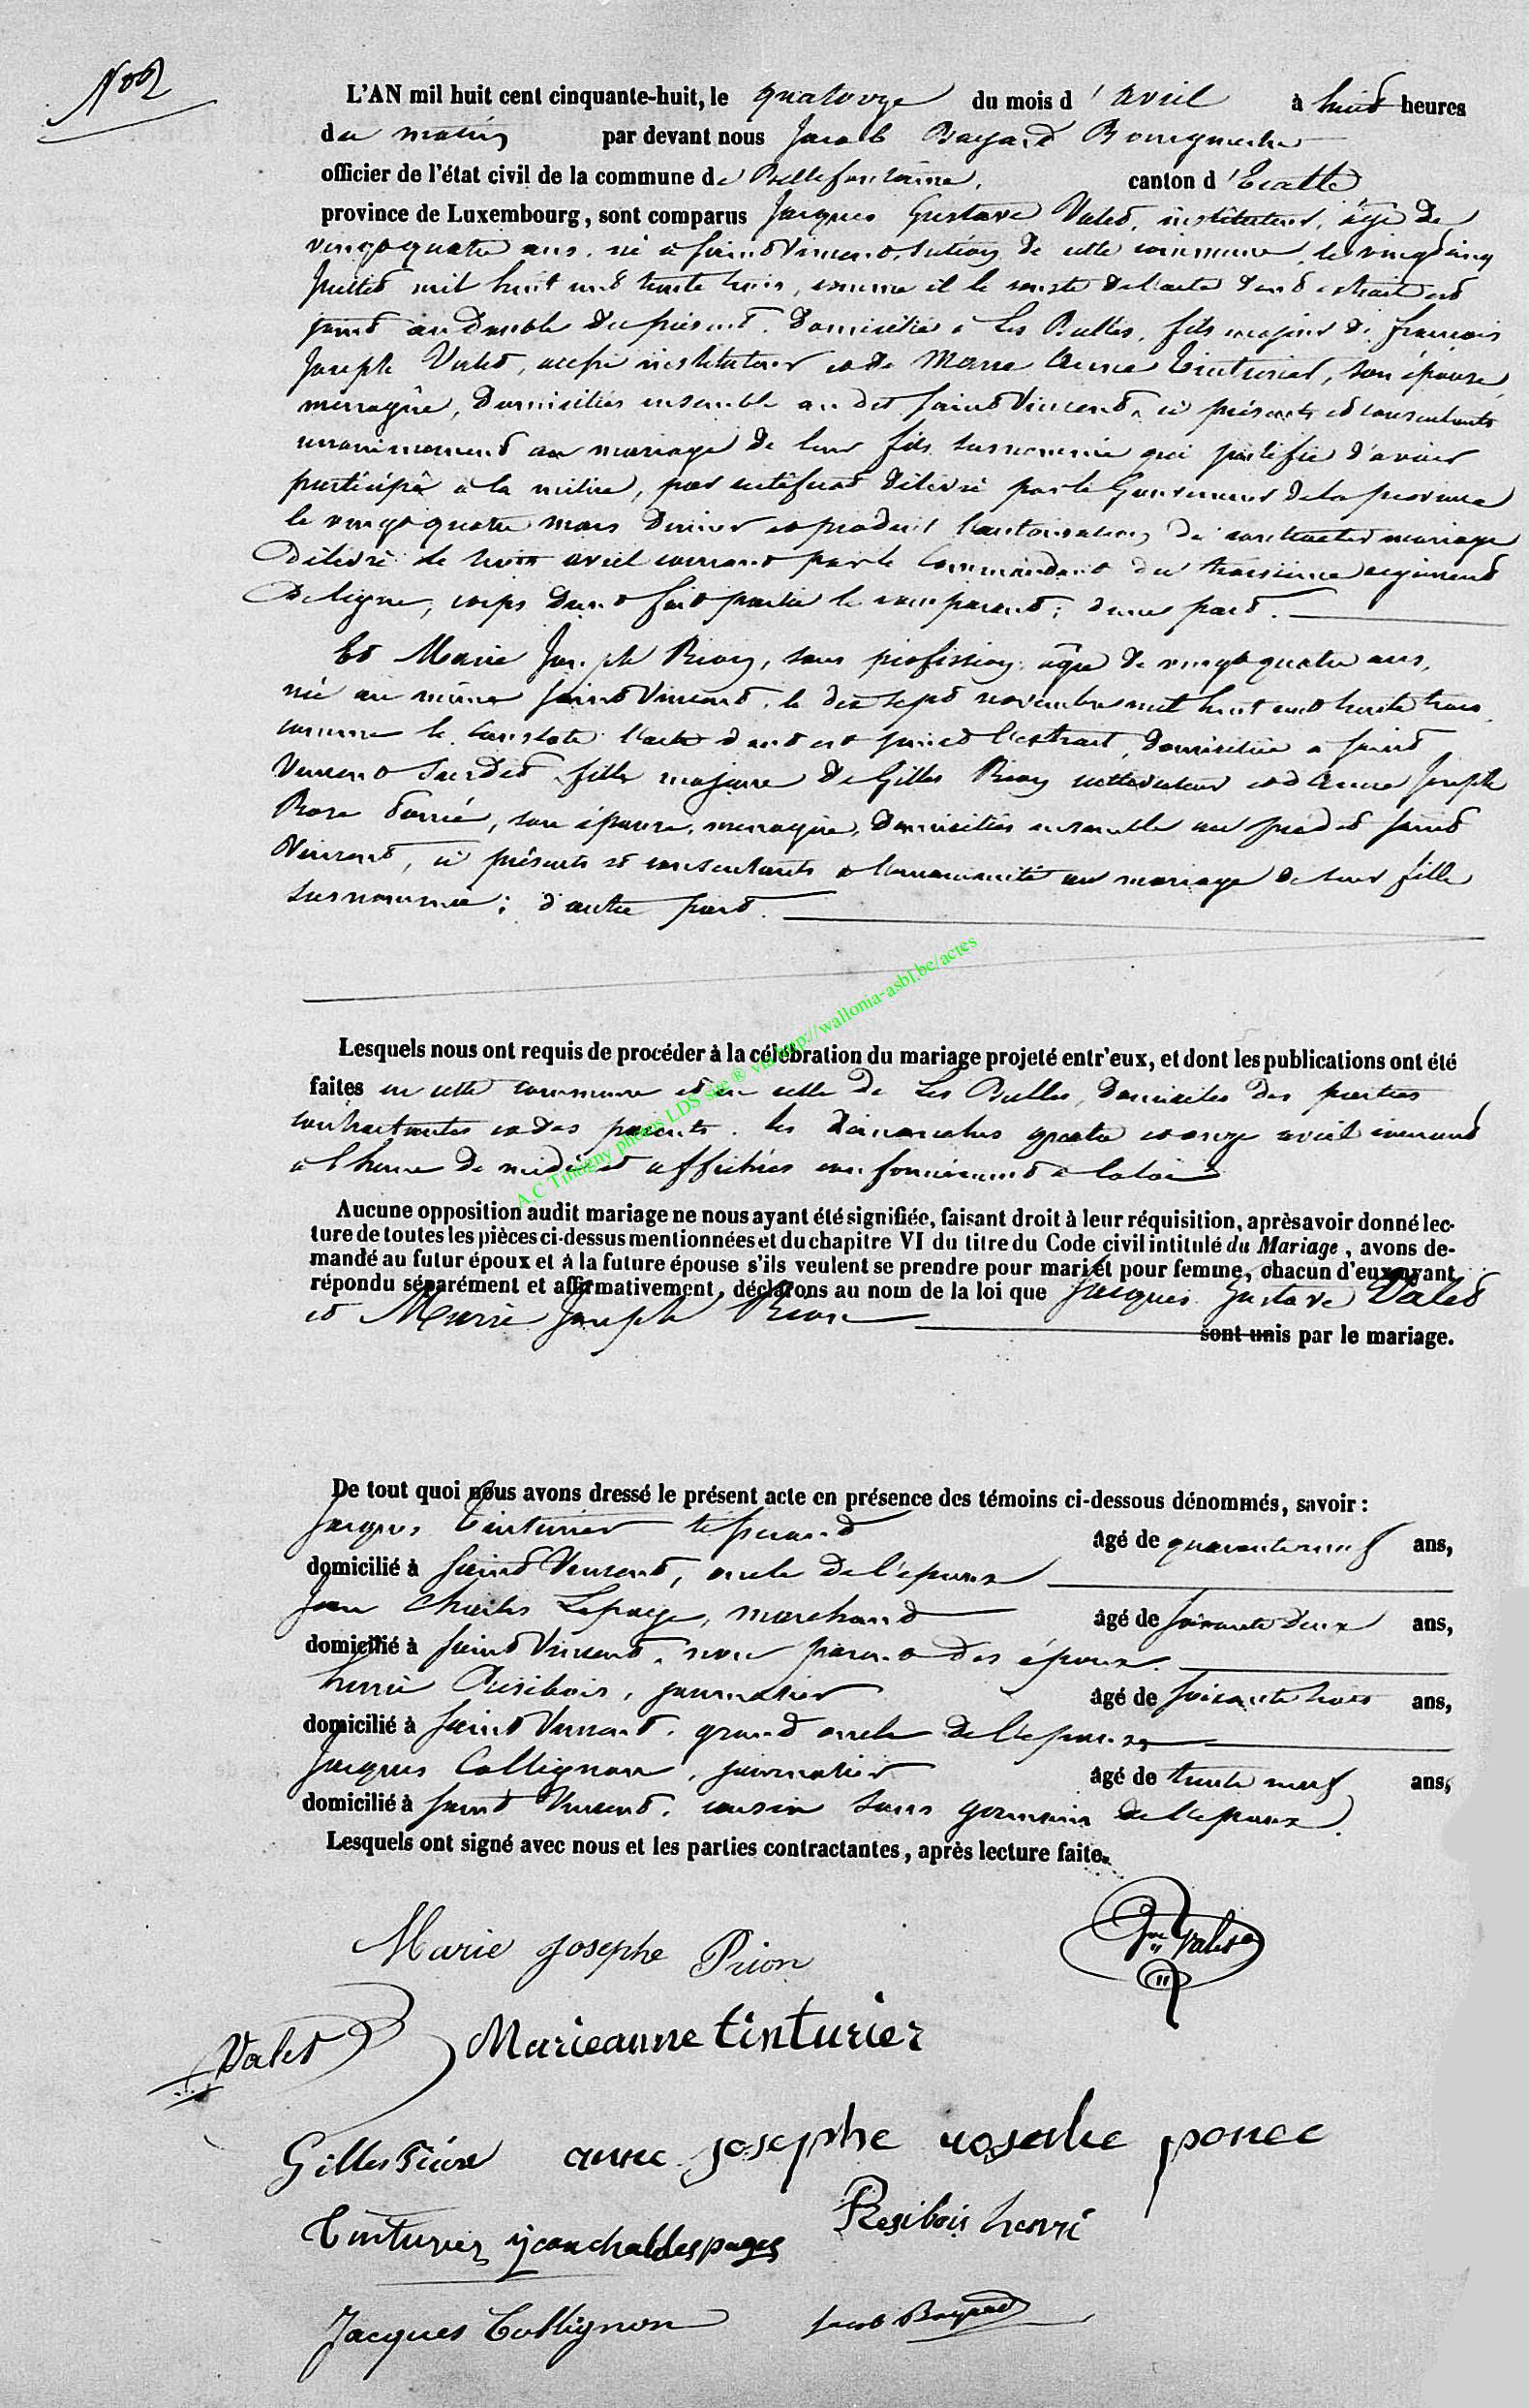 N° 2
L'AN mil huit cent cinquante-huit, le quatorze du mois d'avril à huit heures
du matin par devant nous Jacob Bayard Bourgmestre
officier de l'état civil de la commune de Bellefontaine, canton d'Etalle
province de Luxembourg, sont comparus Jacques Gustave Valet, instituteur, âgé de
vingt quatre ans, né à Saint Vincent, section de cette commune, le vingt cinq
Juillet mil huit cent trente trois, comme il le conste de l'acte dont extrait est
joint au double du présent, domicilié à Les Bulles, fils majeur de François
Joseph Valet, aussi instituteur et de Marie Anne Tinturier, son épouse,
menagère, domiciliés ensemble au dit Saint Vincent, ci présents et consentants
unanimement au mariage de leur fils susnommé qui justifie d'avoir
participé à la milice, par certificat délivré par le Gouverneur de la province
le vingt quatre mars dernier et produit l'autorisation de contracter mariage
délivré le huit avril courant par le Commandant du troisième régiment
De ligne, corps dont fait partie le comparant; d'une part.
Et Marie Joseph Prion, sans profession, âgée de vingt quatre ans,
née au même Saint Vincent, le dix sept novembre mil huit cent trente trois
comme le constate l'acte dont est joint l'extrait, domiciliée à Saint
Vincent susdit, fille majeure de Gilles Prion cultivateur et d'Anne Joseph
Rose Poncé, son épouse, menagère, domiciliés ensemble au susdit Saint
Vincent, ci présents et consentants à l'unanimité au mariage de leur fille
susnommée; d'autre part.
A.C Tintigny photos LDS site ® via http://wallonia-asbl.be/actes
Lesquels nous ont requis de procéder à la célébration du mariage projeté entr'eux, et dont les publications ont été
faites en cette commune et en celle de Les Bulles, domiciles des parties
contractantes et des parents, les dimanches quatre et onze avril courant
à l'heure de midi et affichées conformément à la loi
Aucune opposition audit mariage ne nous ayant été signifiée, faisant droit à leur réquisition, après avoir donné lec-
ture de toutes les pièces ci-dessus mentionnées et du chapitre VI du titre du Code civil intitulé du Mariage, avons de-
mandé au futur époux et à la future épouse s'ils veulent se prendre pour mari et pour femme, chacun d'eux ayant
répondu séparément et affirmativement, déclarons au nom de la loi que Jacques Gustave Valet
et Marie Joseph Prion
sont unis par le mariage.
De tout quoi nous avons dressé le présent acte en présence des témoins ci-dessous dénommés, savoir :
Jacques Tinturier âgé de quarante neuf ans,
domicilié à Saint Vincent, oncle de l'époux
Jean Charles Lepage, marchand âgé de soixante deux ans,
domicilié à Saint Vincent, non parent des époux.
henri Résibois, journalier âgé de soixante trois ans,
domicilié à Saint Vincent, grand oncle de l'épouse
Jacques Collignon, journalier âgé de trente neuf ans,
domicilié à Saint Vincent, cousin sous germain de l'époux.
Lesquels ont signé avec nous et les parties contractantes, après lecture faite.
Marie Josephe Prion
Valet
Valet Marieanne tinturier
Gilles Prion anne josephe rosalie ponce
Tinturier jean charl lespages Resibois henri
Jacques Collignon Jacob Bayard